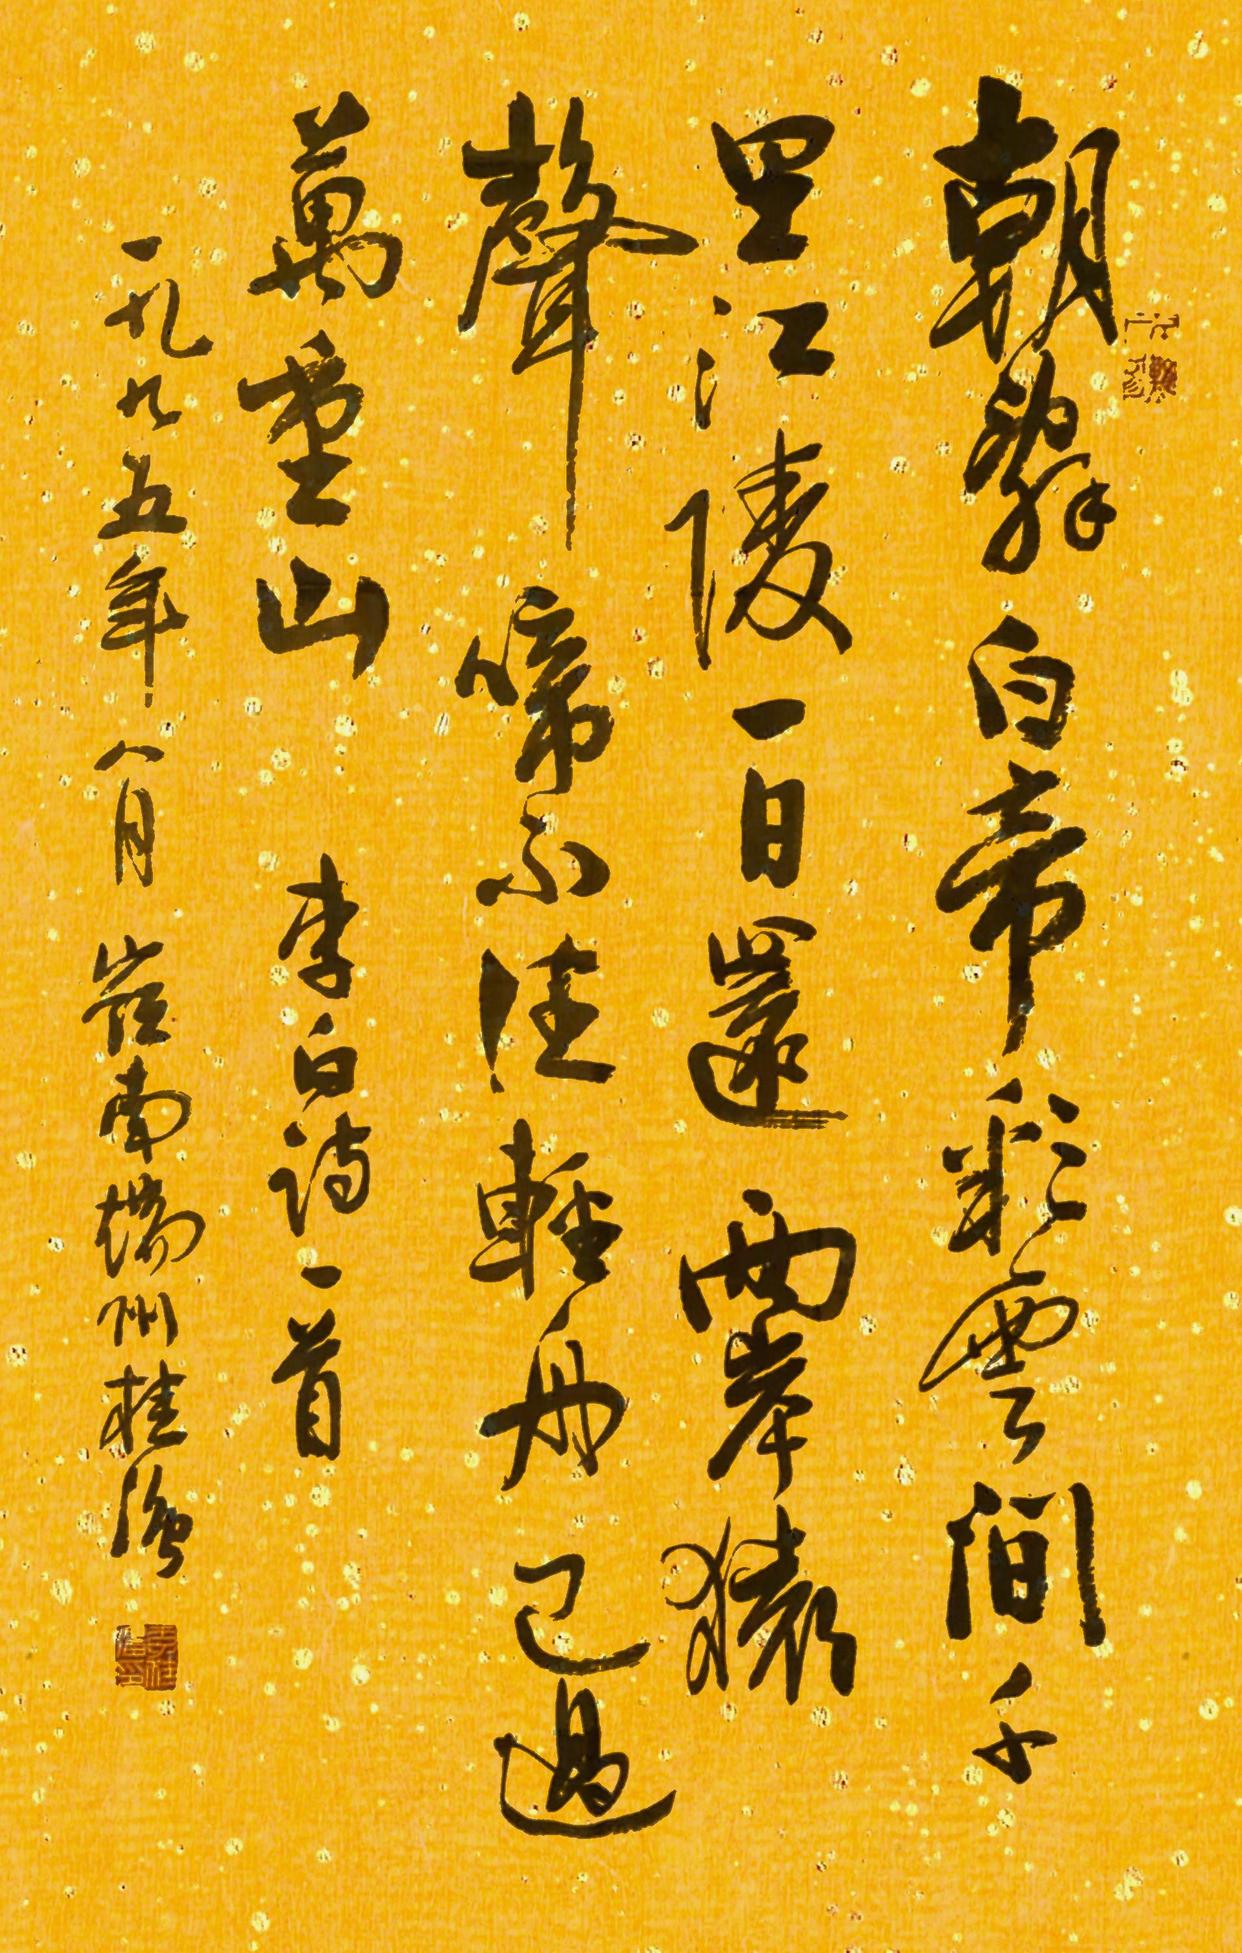 朝辭白帝彩雲間千
里江陵一日還兩岸猿
聲啼不住輕舟已過
萬重山 李白詩一首
一九九五年八月嶺南端州桂